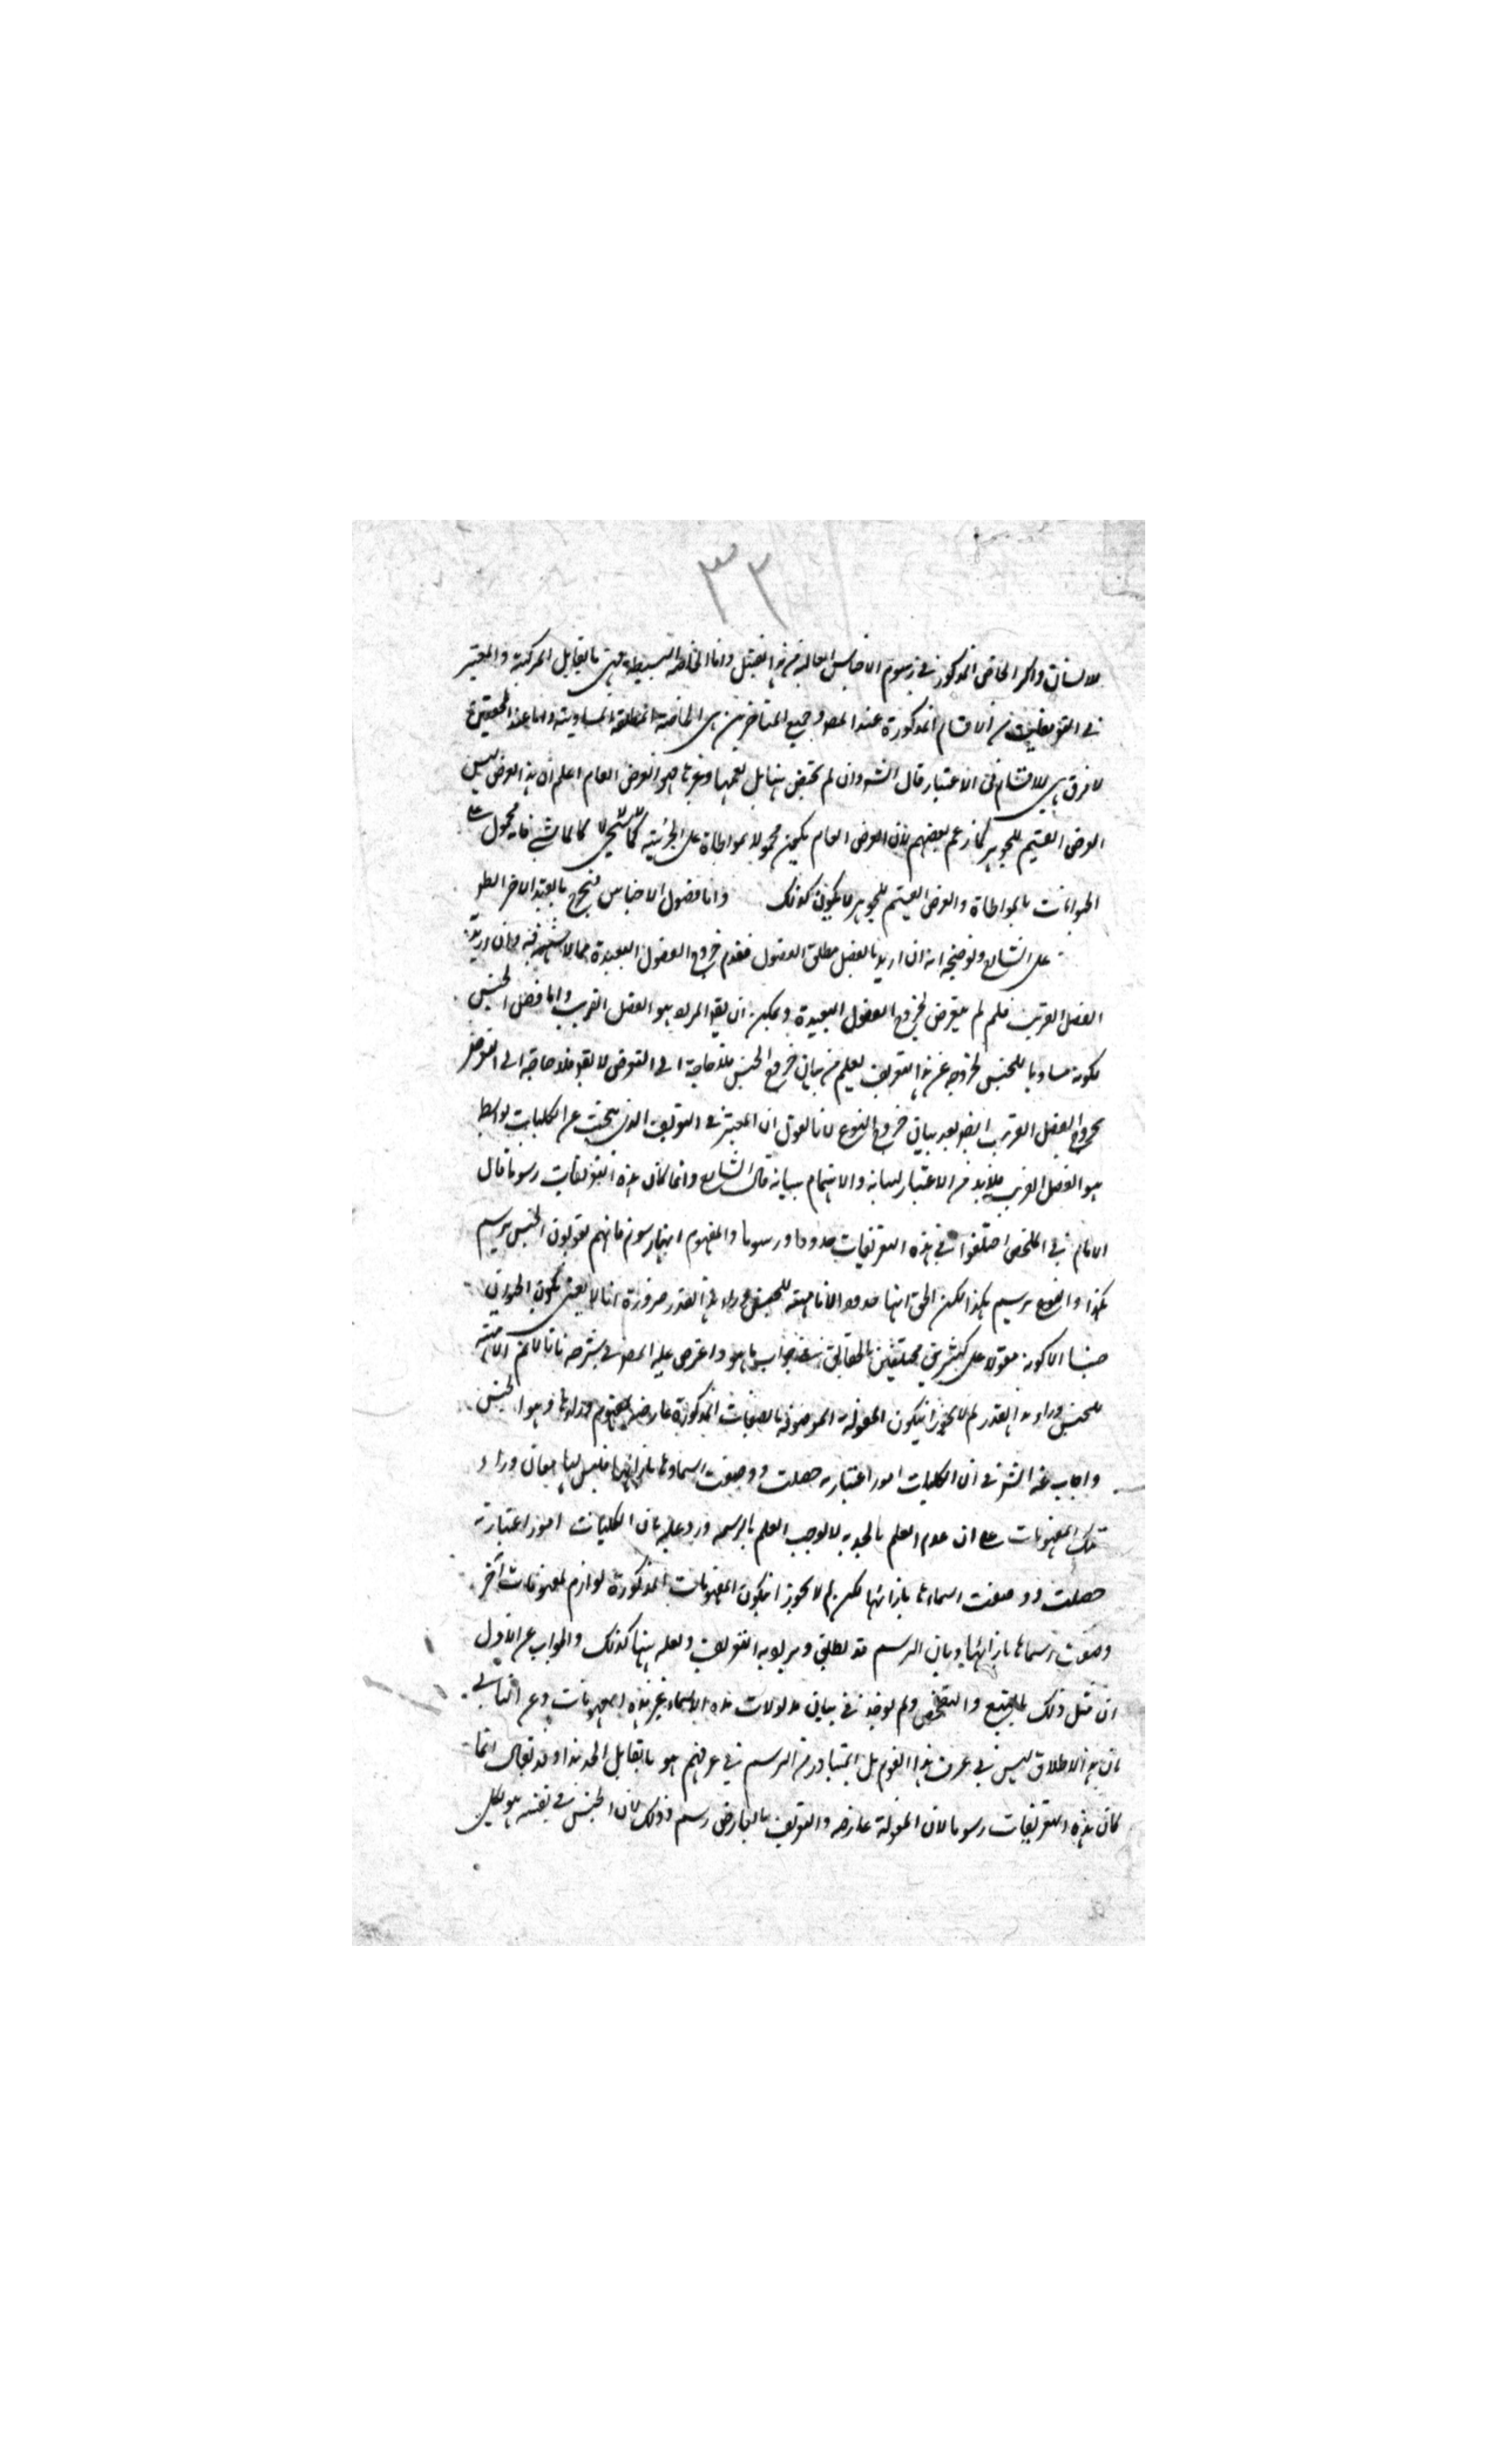 ٣٣
للانسان واكثر الخواص المذكورة في رسوم الاجناس العالية من هذا القبيل واما الخاصة البسيطة فهي ما يقابل المركبة والمعتبر
في التعريفات من الاقسام المذكورة عند المص وجميع المتاخرين هي الخاصة المطلقة المساوية واما عند المحققين
لا فرق بين الاقسام في الاعتبار قال الش وان لم يختص بها بل يعمها وغيرها فهو العرض العام اعلم ان هذا العرض ليس
العرض القسيم للجوهر كما زعم بعضهم لان العرض العام يكون محمولا بمواطاة على الجزئية كالماشي فانه محمول على
الحيوانات بالمواطاة والعرض القسيم للجوهر لا يكون كذلك واما فصول الاجناس فيخرج بالقيد الاخر
على الشارح وتوضيحه انه ان اريد بالفصل مطلق الفصول فعدم خروج الفصول البعيدة مما لا شبهة فيه وان اريد
الفصل القريب فلم لم يتعرض لخروج الفصول البعيدة ويمكن ان يق المراد هو الفصل القريب واما فصل الجنس
لكونه مساويا للجنس لخروجه عن هذا التعريف يعلم من بيان خروج الجنس فلا حاجة الى التعرض لا يقال فلا حاجة الى التعرض
بخروج الفصل القريب ايضا بعد بيان خروج النوع لانا نقول ان المعتبر في التعريف الذي يبحث عن الكليات
هو الفصل القريب فلا بد من الاعتبار لشانه والاهتمام ببيانه قال الشارح وانما كان هذه التعريفات رسوما قال
الامام في الملخص اختلفوا في هذه التعريفات حدودا ورسوما والمفهوم انها رسوم فانهم يقولون الجنس يرسم
بكذا والنوع يرسم بكذا لكن الحق انها حدود اذ لا ماهية للجنس وراء هذا القدر ضرورة انا لا نعني بكون الحيوان
جنسا الا كونه مقولا على كثيرين مختلفين بالحقائق في جواب ما هو واعترض عليه المص في شرحه بانا لا نم ان لا ماهية
للجنس وراء هذا القدر لم لا يجوز ان يكون المقولية الموصوفة بالصفات المذكورة عارضة لمفهوم وراءها وهو الجنس
واجاب عنه الش في ان الكليات امور اعتبارية حصلت ووضعت اسماؤها بازائها فليس لها معان وراء
تلك المفهومات على ان عدم العلم بالحدية لا يوجب العلم بالرسمية ورد عليه بان الكليات امور اعتبارية
حصلت ووضعت اسماءها بازائها لكن لم لا يجوز ان يكون المفهومات المذكورة لوازم لمفهومات اخر
وضعت اسماءها بازائها وبان الرسم قد يطلق ويراد به التعريف ولعله هنا كذلك والجواب عن الاول
ان مثل ذلك بالتتبع والتفحص ولم يوجد في بيان مدلولات هذه الاسماء غير هذه المفهومات وعن الثاني
بان هذا الاطلاق ليس في عرف هذا القوم بل المتبادر من الرسم في عرفهم هو ما يقابل الحد هذا وقد يقال انما
كان هذه التعريفات رسوما لان المقولية عارضة والتعريف بالعارض رسم وذلك لان الجنس في نفسه هو الكلي